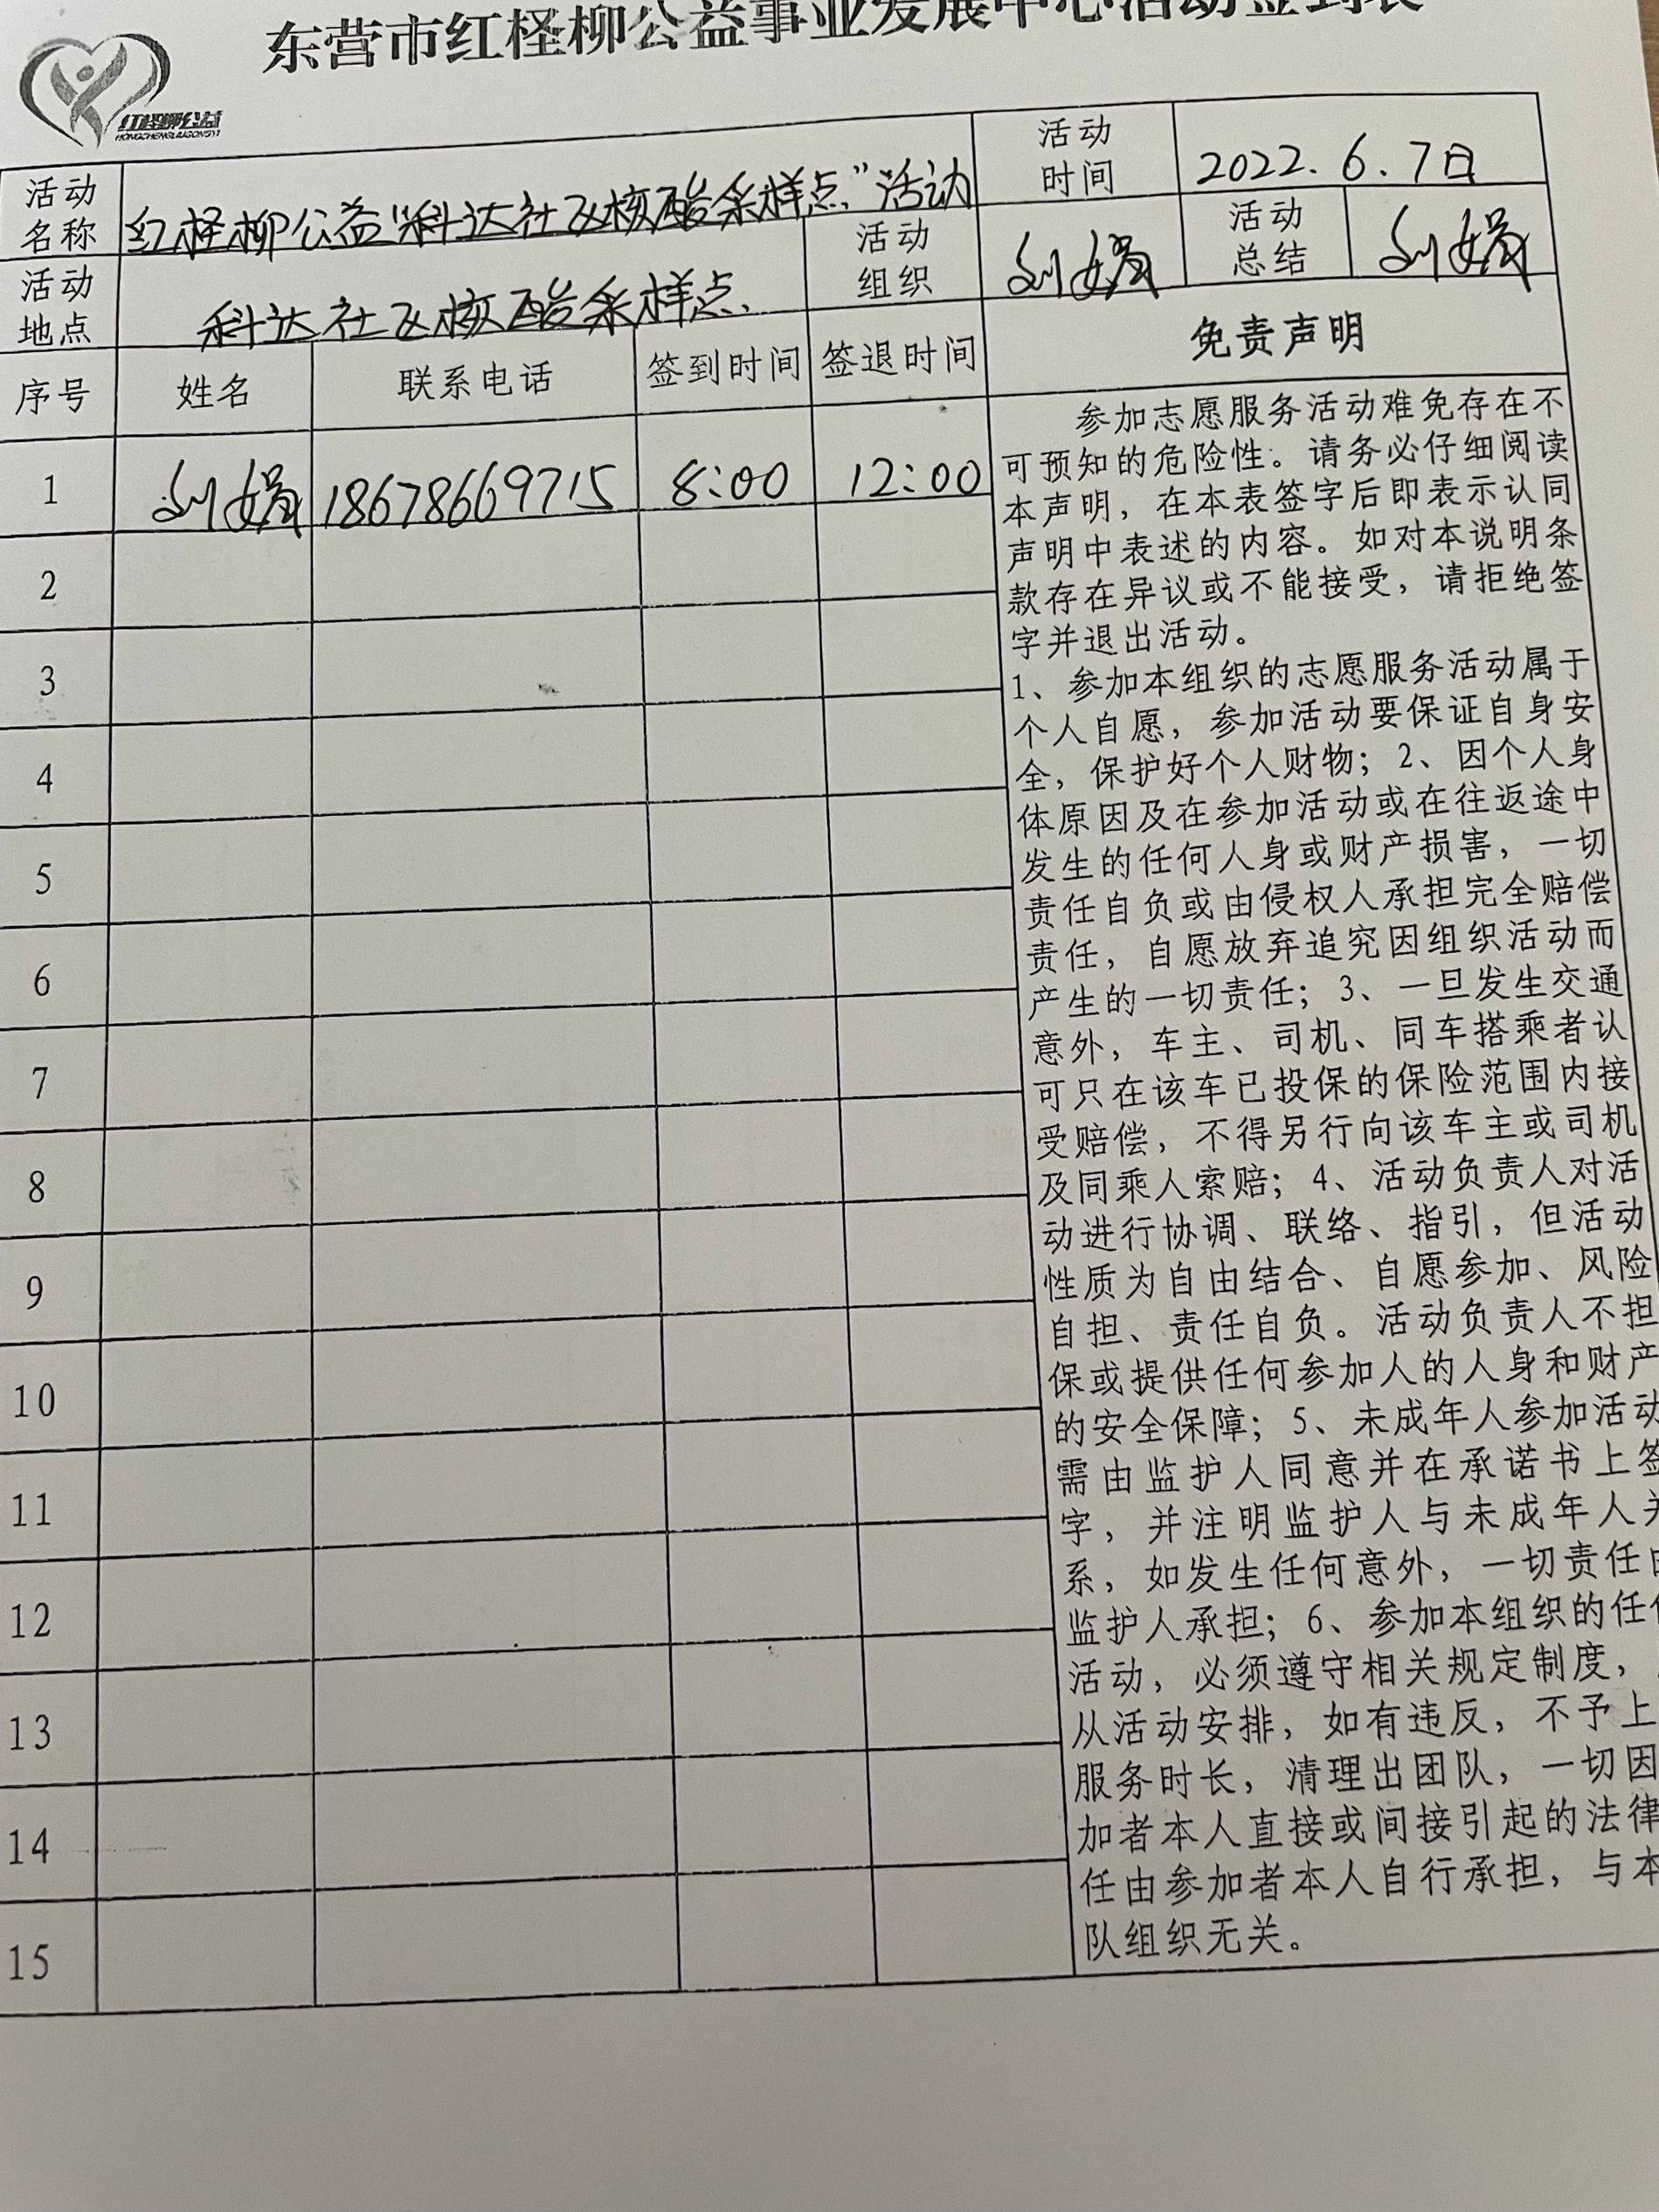 东营市红柽柳公益事业发展中心活动签到表
红柽柳公益
HONGCHENGLIUGONGYI
活动名称 红柽柳公益“科达社区核酸采样点”活动 活动时间 2022.6.7日
活动地点 科达社区核酸采样点 活动组织 刘娟 活动总结 刘娟
序号 姓名 联系电话 签到时间 签退时间 免责声明
1 刘娟 18678669715 8:00 12:00
2
3
4
5
6
7
8
9
10
11
12
13
14
15
参加志愿服务活动难免存在不
可预知的危险性。请务必仔细阅读
本声明，在本表签字后即表示认同
声明中表述的内容。如对本说明条
款存在异议或不能接受，请拒绝签
字并退出活动。
1、参加本组织的志愿服务活动属于
个人自愿，参加活动要保证自身安
全，保护好个人财物；2、因个人身
体原因及在参加活动或在往返途中
发生的任何人身或财产损害，一切
责任自负或由侵权人承担完全赔偿
责任，自愿放弃追究因组织活动而
产生的一切责任；3、一旦发生交通
意外，车主、司机、同车搭乘者认
可只在该车已投保的保险范围内接
受赔偿，不得另行向该车主或司机
及同乘人索赔；4、活动负责人对活
动进行协调、联络、指引，但活动
性质为自由结合、自愿参加、风险
自担、责任自负。活动负责人不担
保或提供任何参加人的人身和财产
的安全保障；5、未成年人参加活动
需由监护人同意并在承诺书上签
字，并注明监护人与未成年人关
系，如发生任何意外，一切责任由
监护人承担；6、参加本组织的任何
活动，必须遵守相关规定制度，
从活动安排，如有违反，不予上
服务时长，清理出团队，一切因
加者本人直接或间接引起的法律
任由参加者本人自行承担，与本
队组织无关。